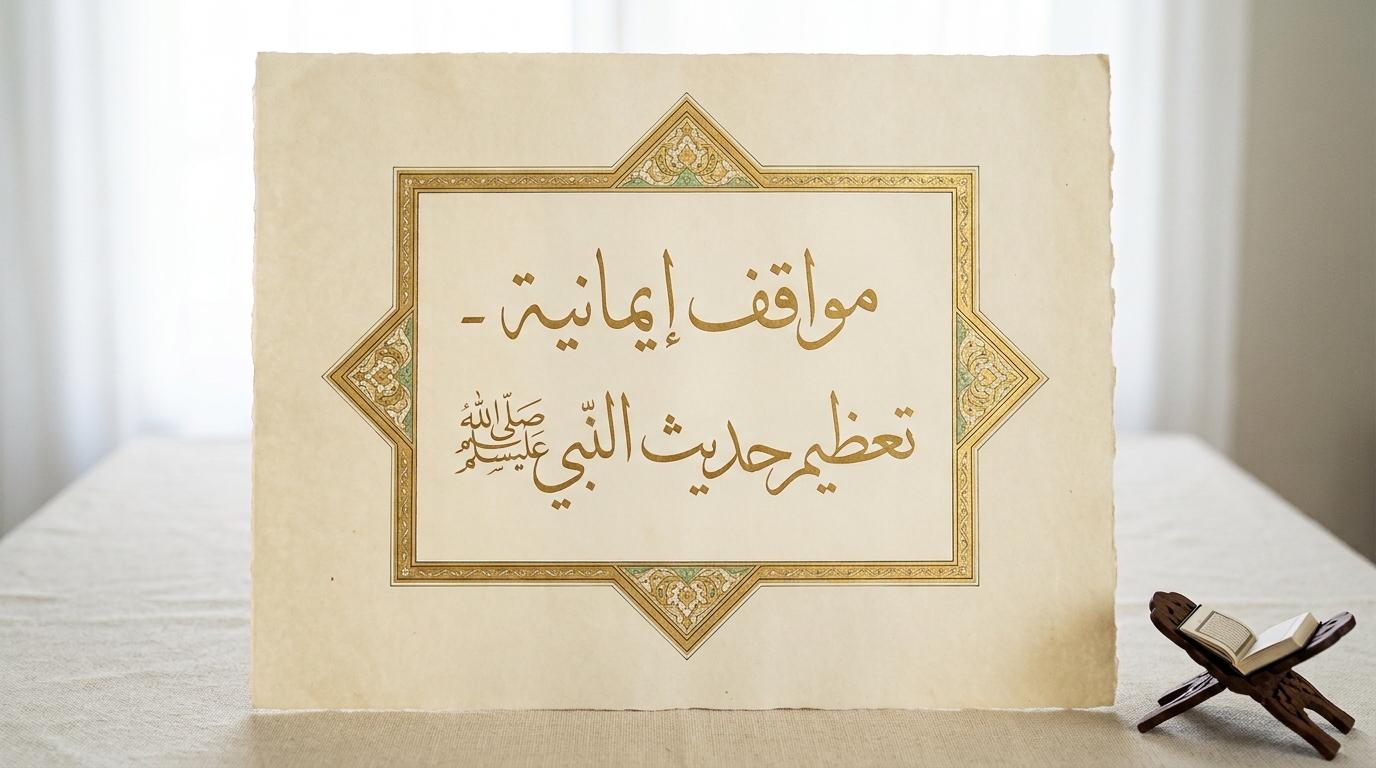 مواقف إيمانية -
تعظيم حديث النّبي صَلّى اللهُ عَليسلم